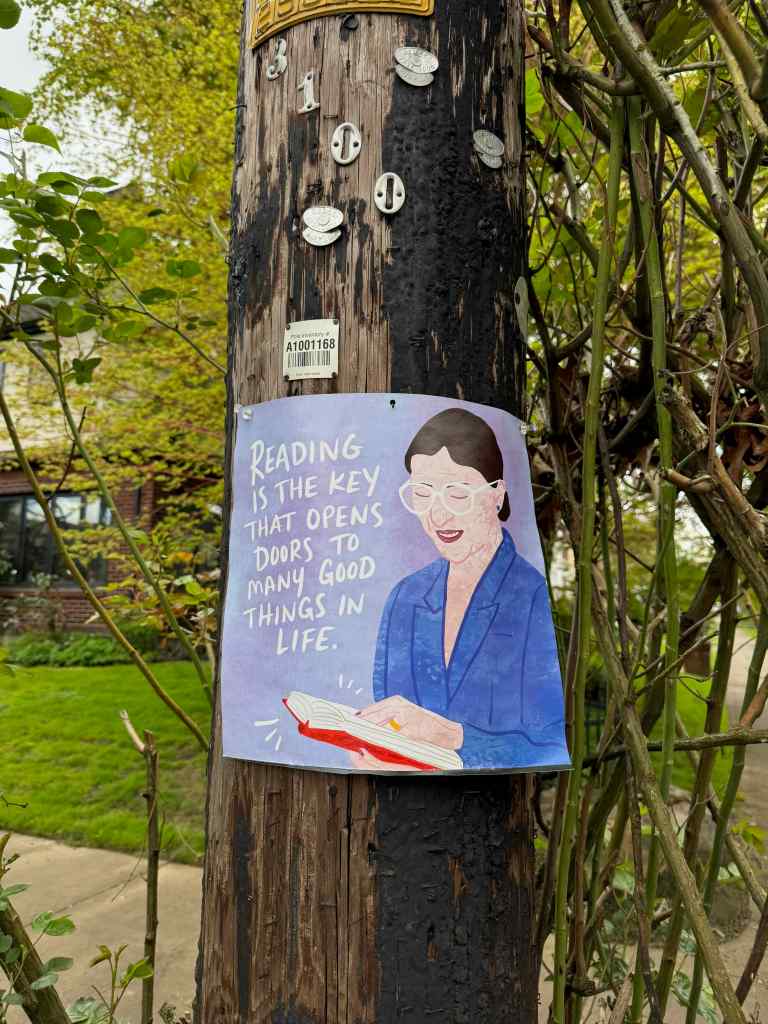 3
1
0
0
Pole Inventory #
A1001168
READING
IS THE KEY
THAT OPENS
DOORS TO
MANY GOOD
THINGS IN
LIFE.